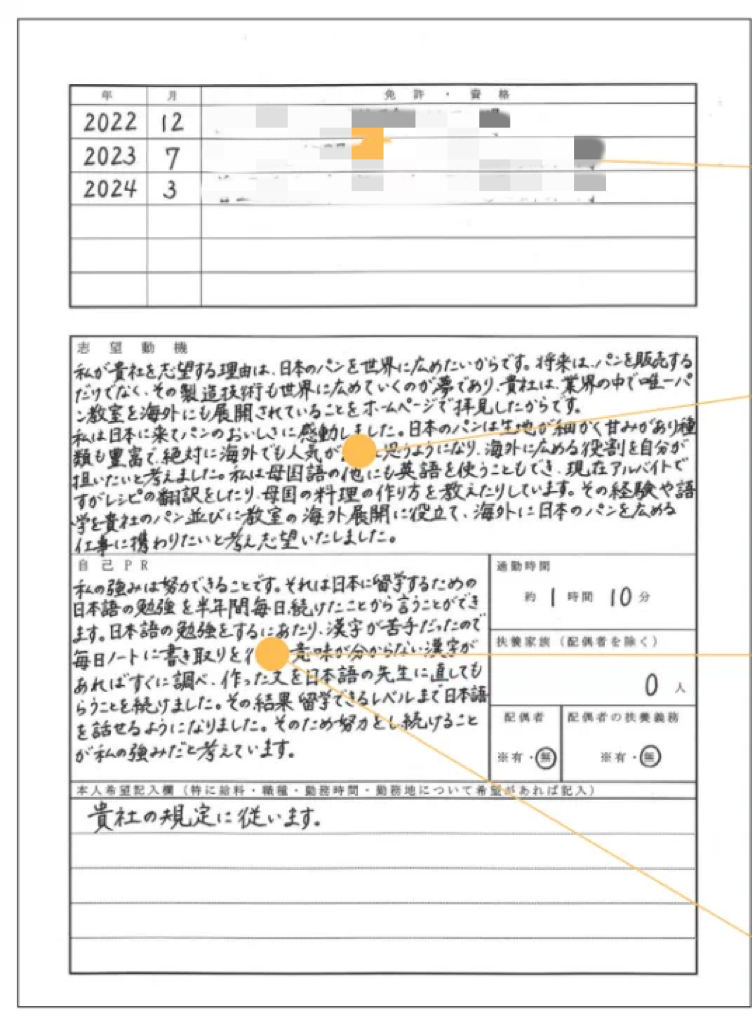 年 月 免許・資格
2022 12
2023 7
2024 3
志望動機
私が貴社を志望する理由は、日本のパンを世界に広めたいからです。将来は、パンを販売する
だけでなく、その製造技術も世界に広めていくのが夢であり、貴社は、業界の中で唯一パ
ン教室を海外にも展開されていることをホームページで拝見したからです。
私は日本に来てパンのおいしさに感動しました。日本のパンは生地が細かく甘みがあり種
類も豊富で、絶対に海外でも人気が 思うようになり、海外に広める役割を自分が
担いたいと考えました。私は母国語の他にも英語を使うこともでき、現在アルバイトで
すがレシピの翻訳をしたり、母国の料理の作り方を教えたりしています。その経験や語
学を貴社のパン並びに教室の海外展開に役立て、海外に日本のパンを広める
仕事に携わりたいと考え志望いたしました。
自己PR
私の強みは努力できることです。それは日本に留学するための
日本語の勉強を半年間毎日続けたことから言うことができ
ます。日本語の勉強をするにあたり、漢字が苦手だったので
毎日ノートに書き取りを 意味が分からない漢字が
あればすぐに調べ、作った文を日本語の先生に直しても
らうことを続けました。その結果留学できるレベルまで日本語
を話せるようになりました。そのため努力をし続けること
が私の強みだと考えています。
通勤時間
約 1 時間 10 分
扶養家族(配偶者を除く)
0 人
配偶者 配偶者の扶養義務
※有・無 ※有・無
本人希望記入欄(特に給料・職種・勤務時間・勤務地について希望があれば記入)
貴社の規定に従います。